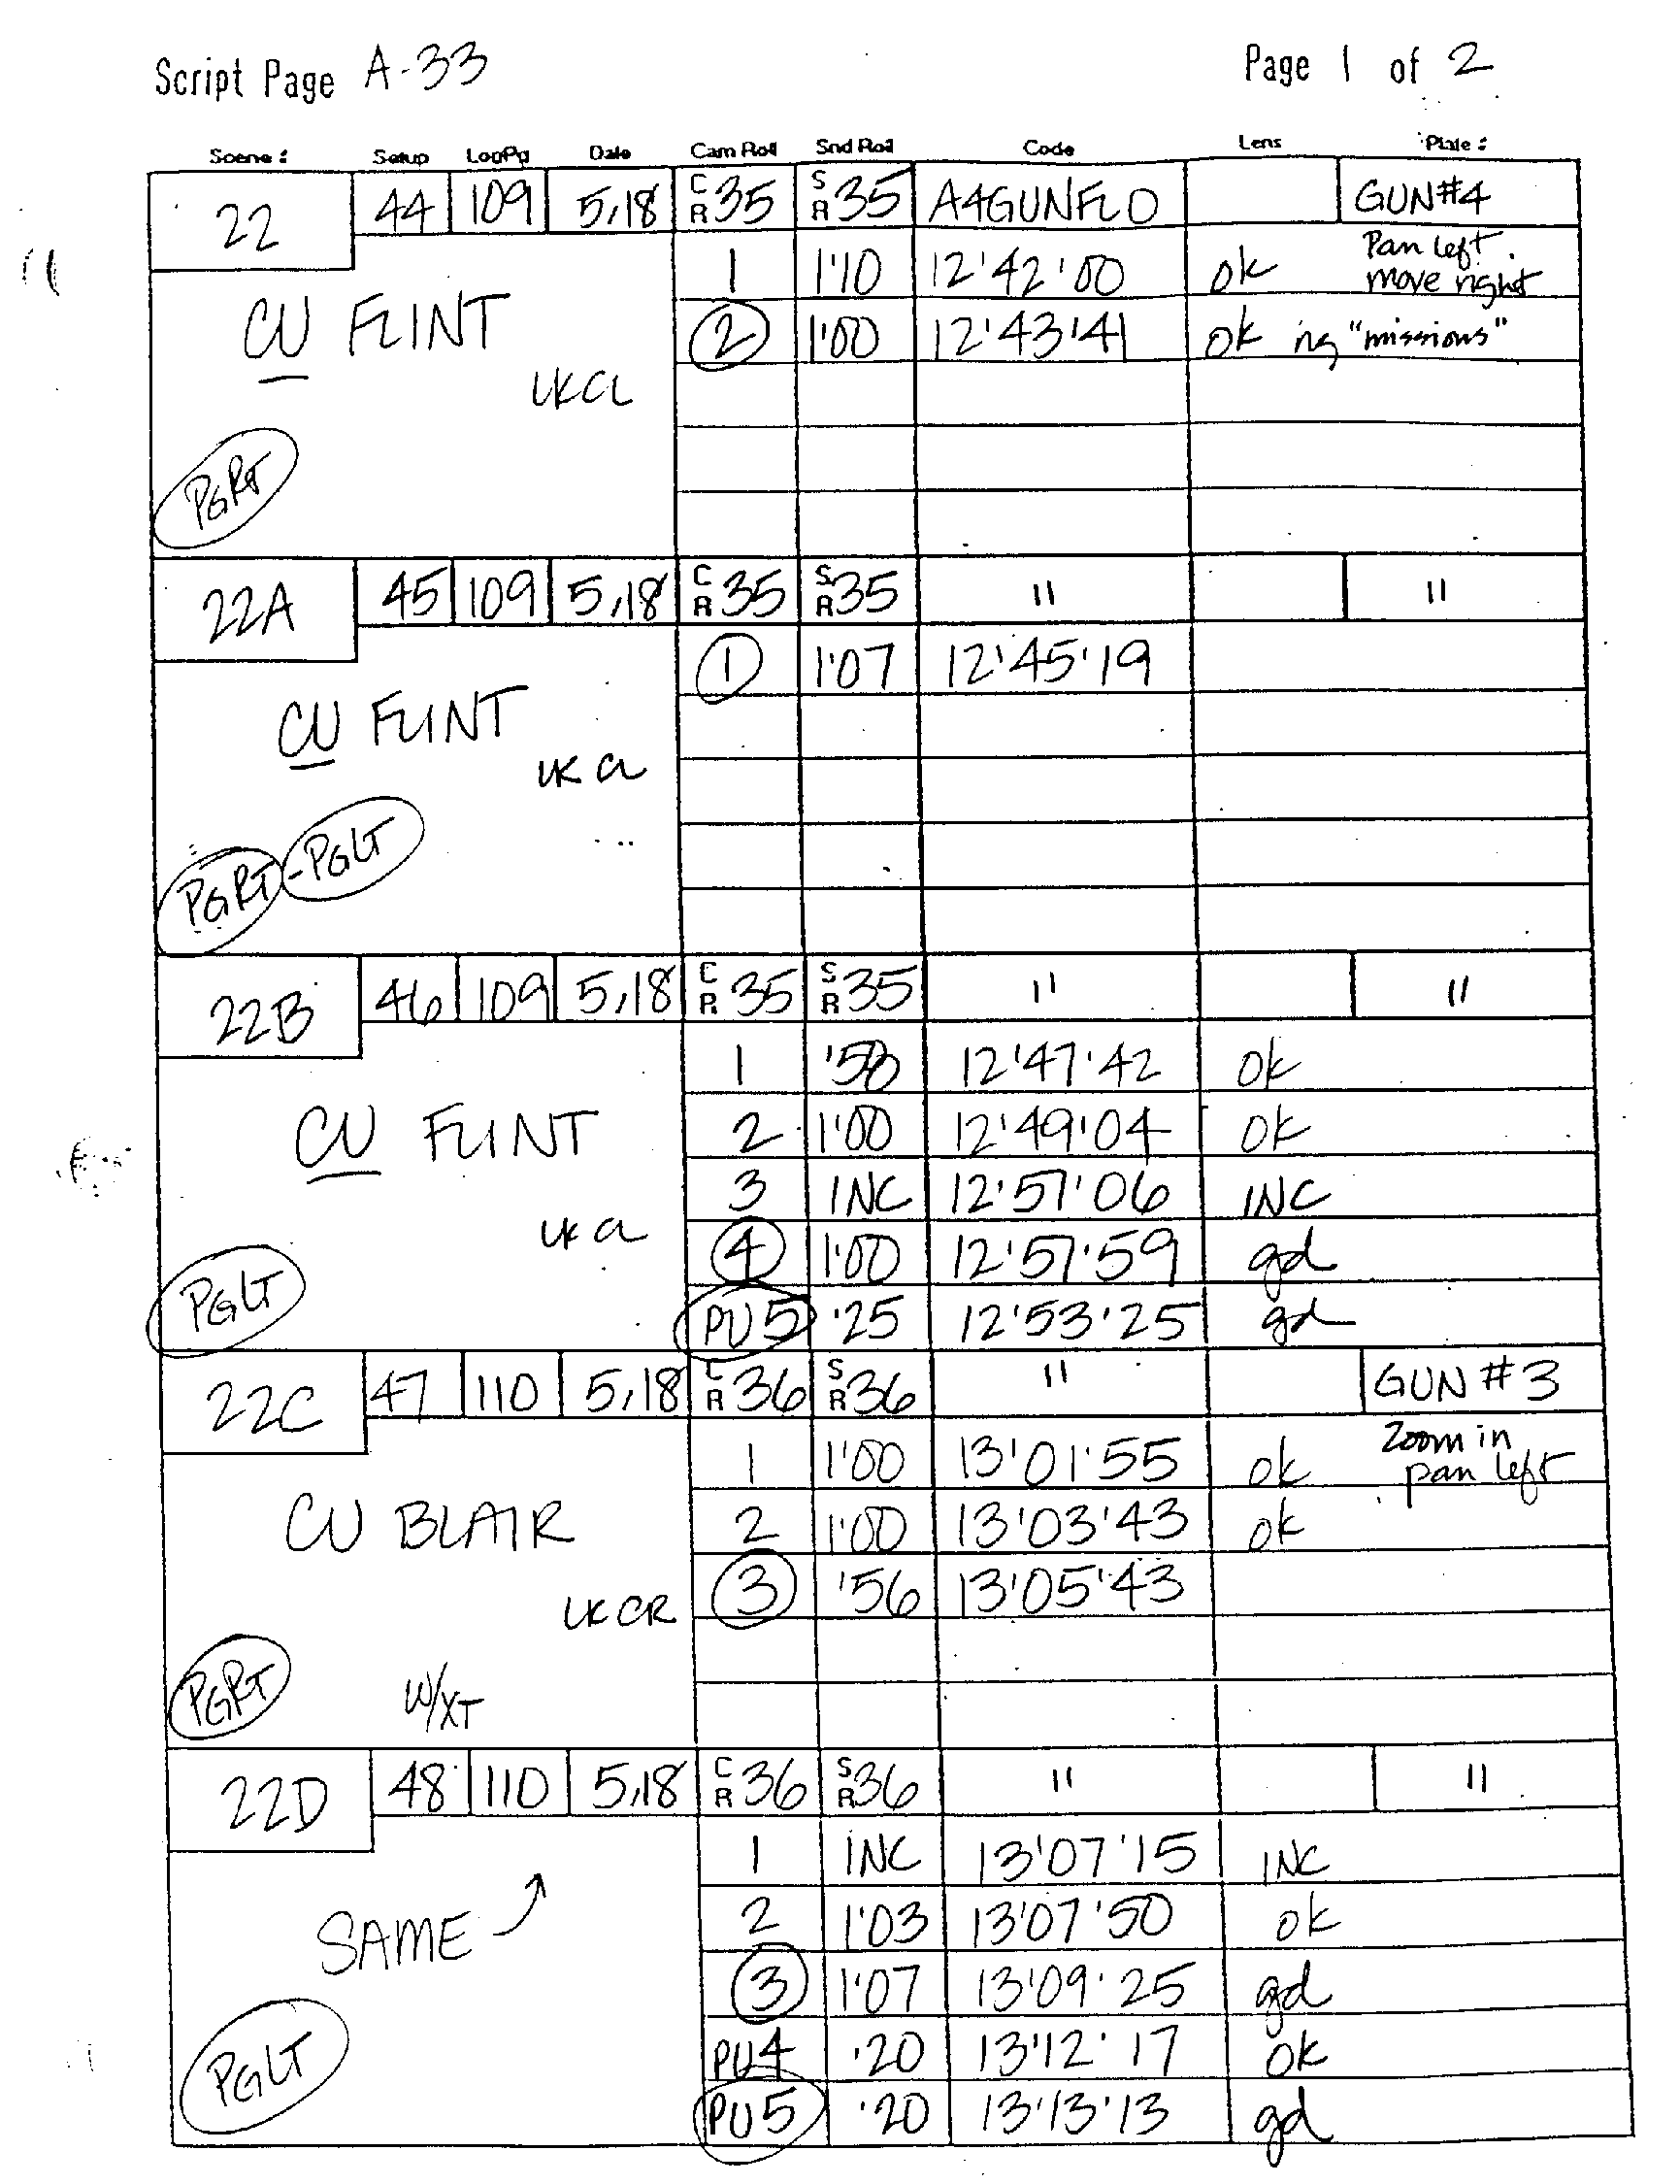 Script Page A-33 Page 1 of 2
Scene: Setup LogPg Date Cam Roll Snd Roll Code Lens Plate:
22 44 109 5,18 CR 35 SR 35 A4GUNFLO GUN#4
1 1'10 12'42'00 ok Pan left move right
CU FLINT ② 1'00 12'43'41 ok ng "missions"
LKCL
PGRT
22A 45 109 5,18 CR 35 SR 35 " "
① 1'07 12'45'19
CU FLINT
LKCL
PGRT - PGLT
22B 46 109 5,18 CR 35 SR 35 " "
1 '58 12'47'42 ok
CU FLINT 2 1'00 12'49'04 ok
3 INC 12'57'06 INC
LKCL ④ 1'00 12'57'59 gd
PGLT PU5 '25 12'53'25 gd
22C 47 110 5,18 CR 36 SR 36 " GUN #3
1 1'00 13'01'55 ok Zoom in pan left
CU BLAIR 2 1'00 13'03'43 ok
LKCR ③ '56 13'05'43
PGRT W/XT
22D 48 110 5,18 CR 36 SR 36 " "
1 INC 13'07'15 INC
SAME 2 1'03 13'07'50 ok
③ 1'07 13'09'25 gd
PGLT PU4 '20 13'12'17 ok
PU5 '20 13'13'13 gd